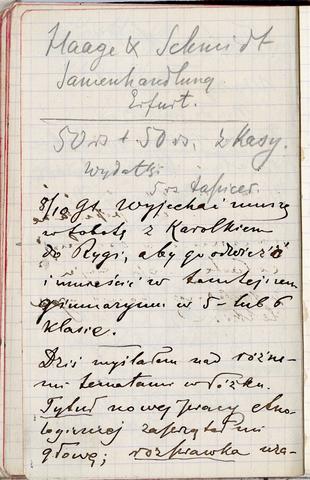 Haage & Schmidt
Samenhandlung
Erfurt.
50 rs + 50 rs. z Kasy.
wydatki
5 rs tapicer.
8/18 Gt. Wyjechać muszę
w sobotę z Karolkiem
do Rygi, aby go odwieźć
i umieścić w tamtejszem
gimnazyum w 5- lub 6
klasie.
Dziś myślałem nad różne-
mi tematami w łóżku.
Tytuł nowej pracy etno-
logicznej zaprzątał mi
głowę; rozprawka